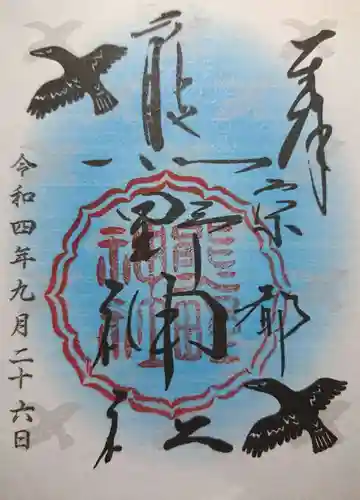 奉拝
京都
熊野神社
令和四年九月二十六日